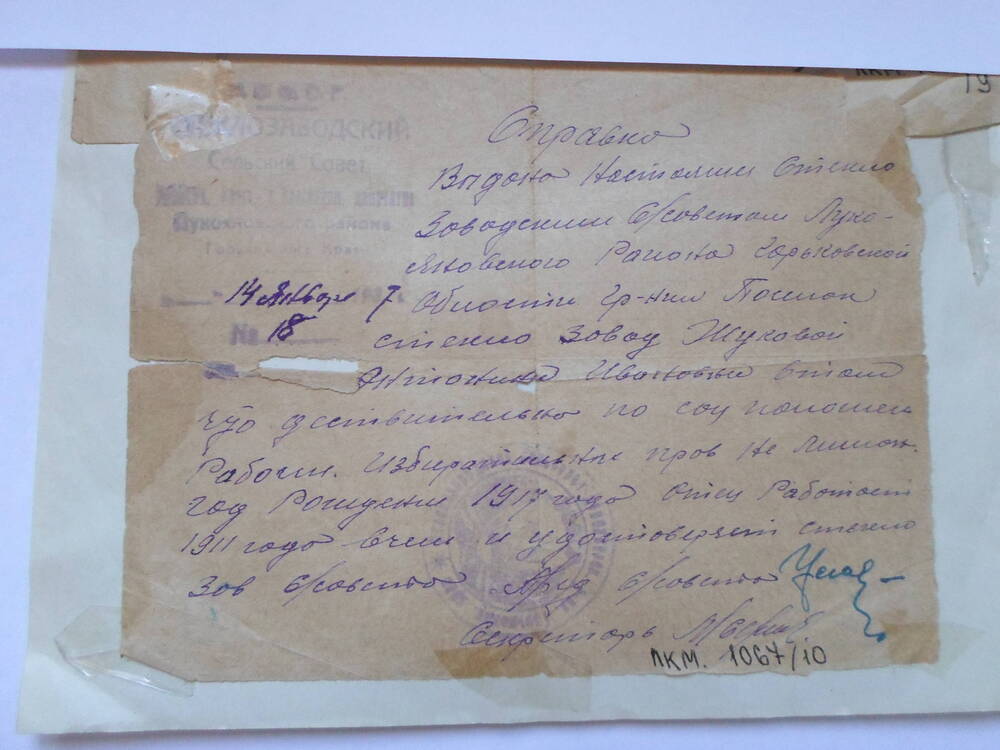 ЛКМ.
19
РСФСР
СТЕКЛОЗАВОДСКИЙ
Сельский Совет
Лукояновского района
Горьковского Края
14 Января 7
№ 18
Справка
Выдона Настоящи Стекло
Заводскими С/советом Луко-
яновского Района Горьковской
Области Гр-нки Поселок
стекло Завод Жуковой
Антонины Ивановны втом
что действительно по соц положен
Рабочи. Избирательных прав не лишон.
год Рождени 1917 года Отец Работает
1911 года вчем и удостоверяет стекло
Зов С/совета Пред С/совета
Секретарь
ЛКМ. 1067/10